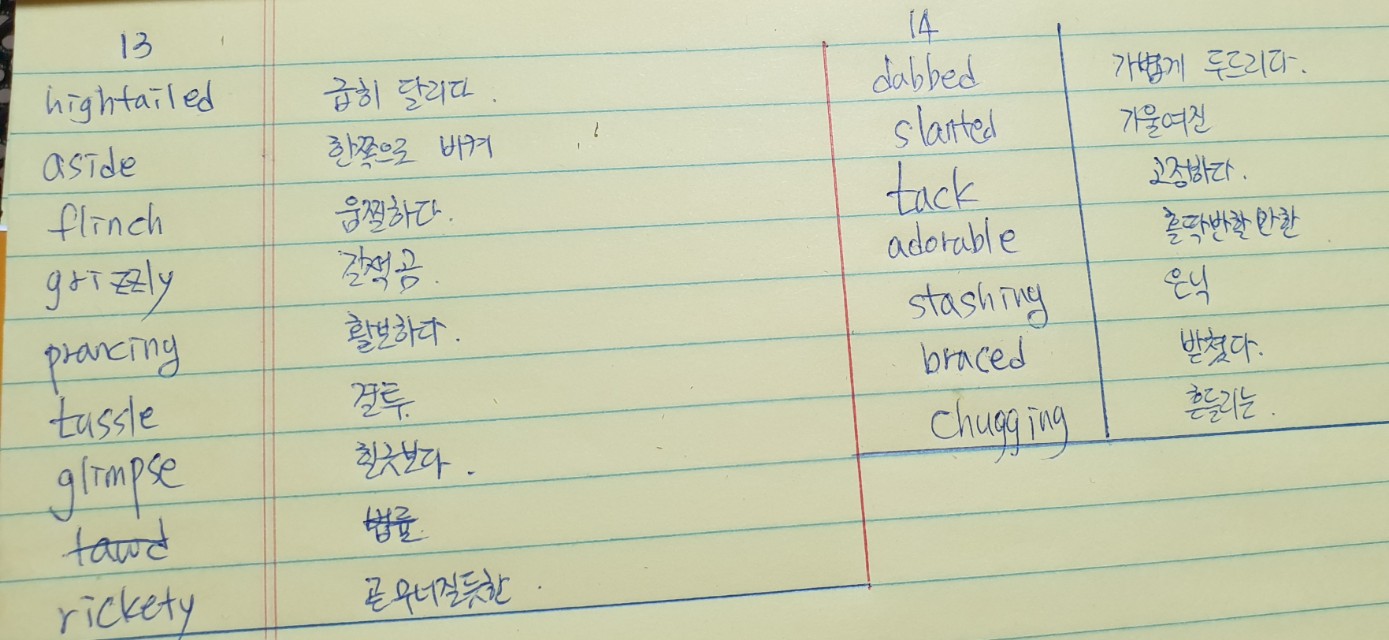 13
hightailed 급히 달리다.
aside 한쪽으로 비켜
flinch 움찔하다.
grizzly 갈색곰.
prancing 활보하다.
tussle 결투.
glimpse 힐긋보다.
tawd 법률.
rickety 곧무너질듯한.
14
dabbed 가볍게 두드리다.
slanted 기울여진
tack 고정하다.
adorable 홀딱반할만한
stashing 은닉
braced 받쳤다.
chugging 흔들리는.